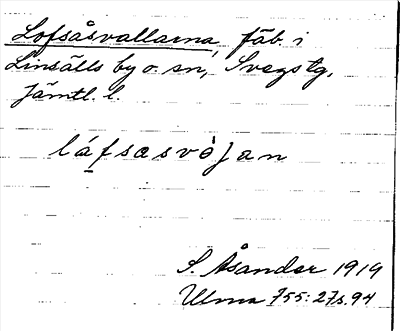 Lofsåsvallarna, fäb. i
Linsälls by o. sn, Svegs tg,
Jämtl. l.
láfsasvòʃan
S. Åsander 1919
Ulma 755:27 s. 94